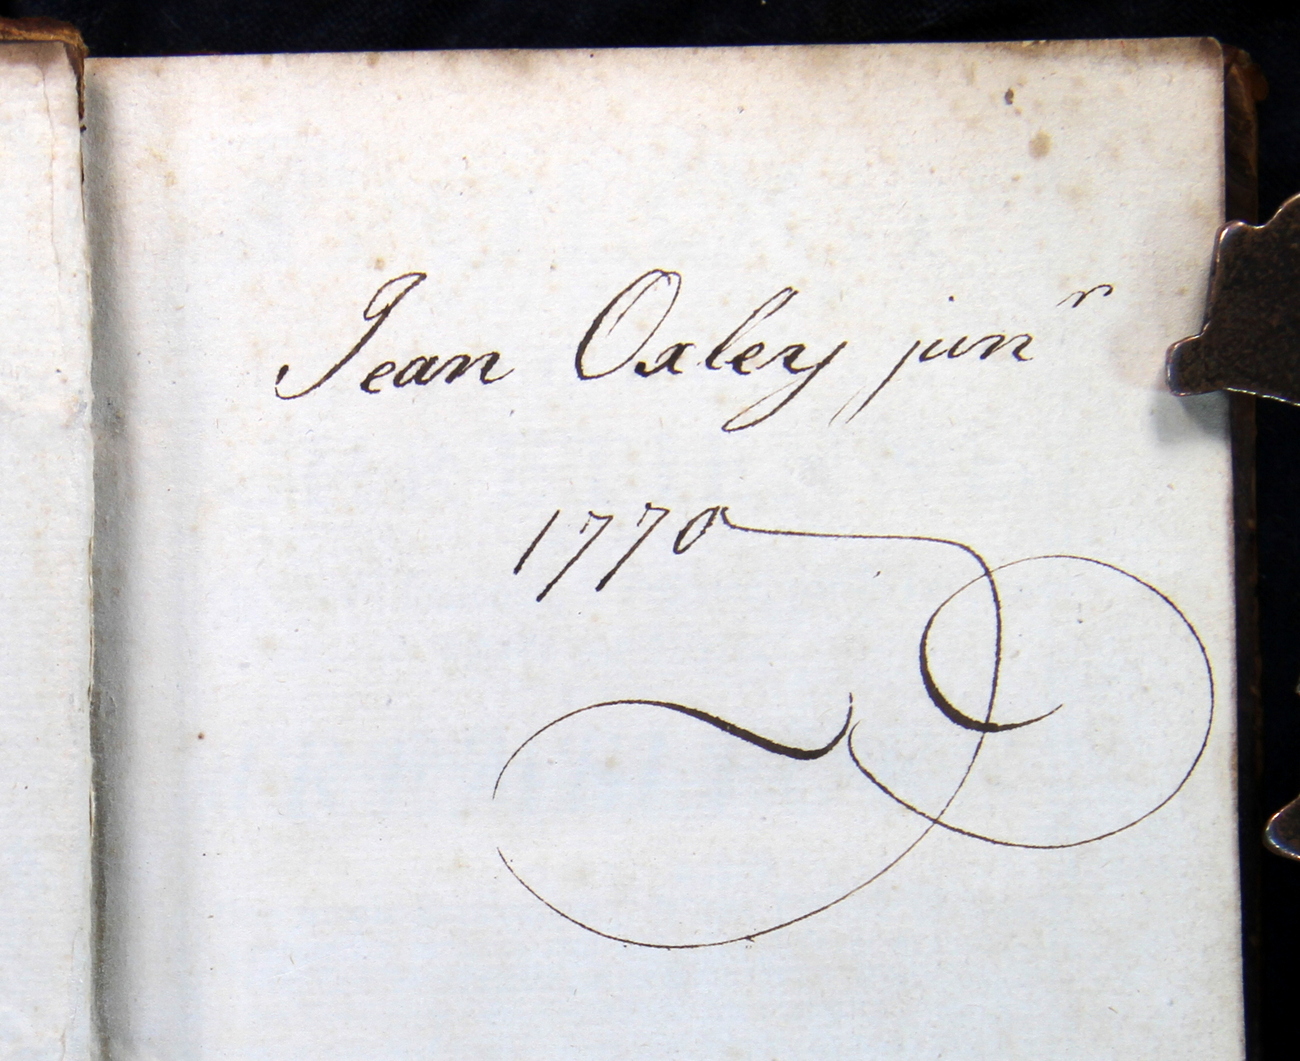 Jean Oxley junʳ
1770